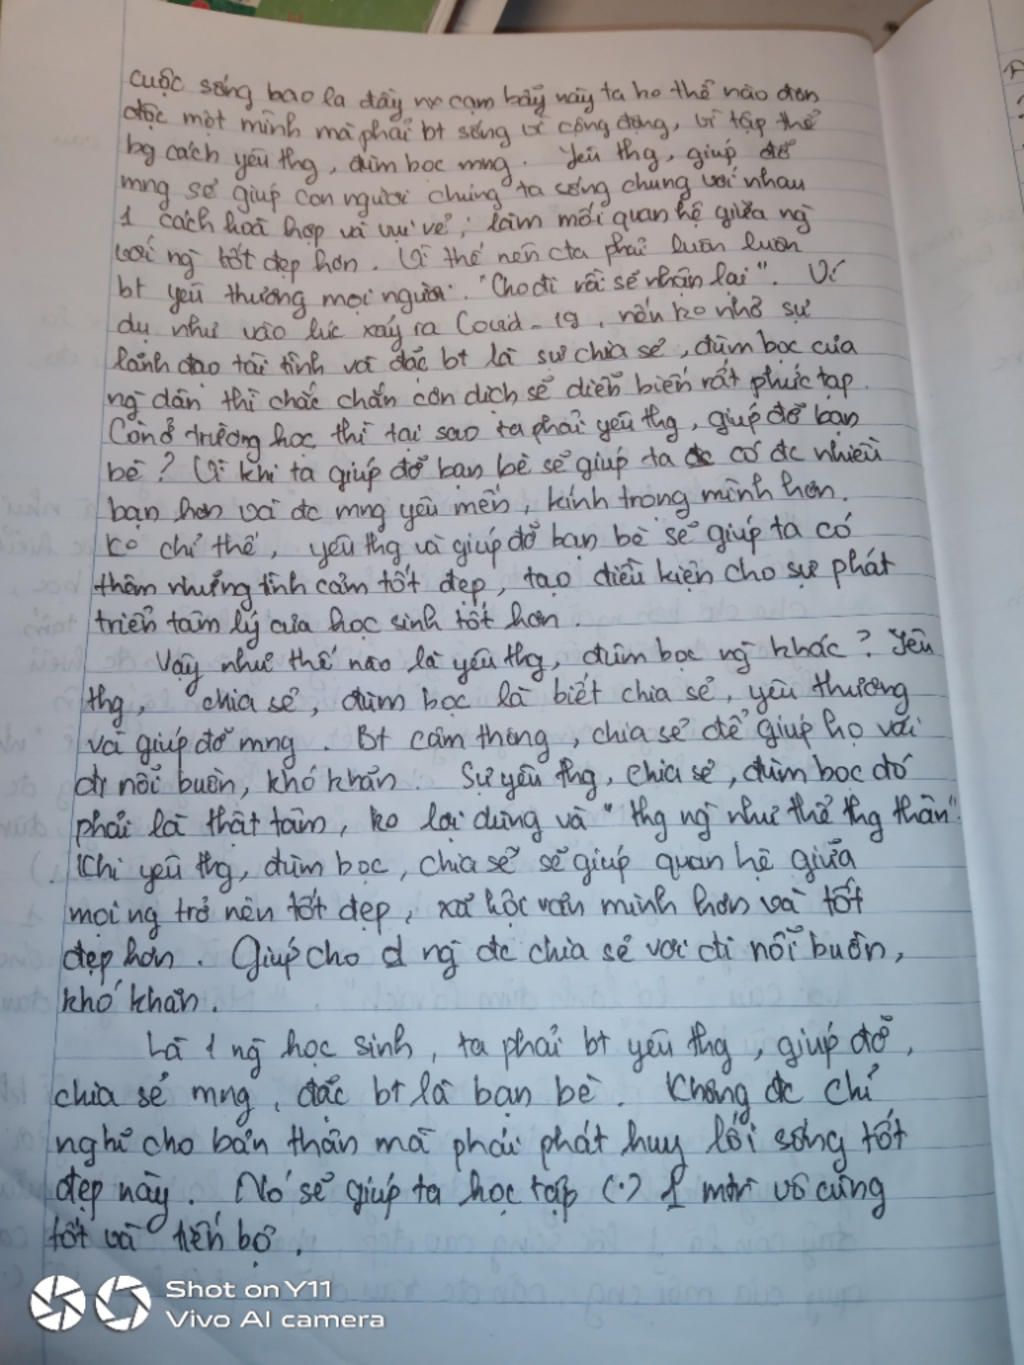 cuộc sống bao la đầy nx cạm bẫy này ta ko thể nào đơn
độc một mình mà phải bt sống vì cộng đồng, vì tập thể
bg cách yêu thg, đùm bọc mng. Yêu thg, giúp đỡ
mng sẽ giúp con người chúng ta sống chung với nhau
1 cách hoà hợp và vui vẻ; làm mối quan hệ giữa ng
với ng tốt đẹp hơn. Vì thế nên cta phải luôn luôn
bt yêu thương mọi người. "Cho đi rồi sẽ nhận lại". Ví
dụ như vào lúc xảy ra Covid-19, nếu ko nhờ sự
lãnh đạo tài tình và đặc bt là sự chia sẻ, đùm bọc của
ng dân thì chắc chắn cơn dịch sẽ diễn biến rất phức tạp.
Còn ở trường học thì tại sao ta phải yêu thg, giúp đỡ bạn
bè? Vì khi ta giúp đỡ bạn bè sẽ giúp ta có đc nhiều
bạn hơn và đc mng yêu mến, kính trọng mình hơn.
Ko chỉ thế, yêu thg và giúp đỡ bạn bè sẽ giúp ta có
thêm những tình cảm tốt đẹp, tạo điều kiện cho sự phát
triển tâm lý của học sinh tốt hơn.
Vậy như thế nào là yêu thg, đùm bọc ng khác? Yêu
thg, chia sẻ, đùm bọc là biết chia sẻ, yêu thương
và giúp đỡ mng. Bt cảm thông, chia sẻ để giúp họ vơi
đi nỗi buồn, khó khăn. Sự yêu thg, chia sẻ, đùm bọc đó
phải là thật tâm, ko lợi dụng và "thg ng như thể thg thân".
Khi yêu thg, đùm bọc, chia sẻ sẽ giúp quan hệ giữa
mọi ng trở nên tốt đẹp, xã hội văn minh hơn và tốt
đẹp hơn. Giúp cho ng đc chia sẻ vơi đi nỗi buồn,
khó khăn.
Là 1 ng học sinh, ta phải bt yêu thg, giúp đỡ,
chia sẻ mng, đặc bt là bạn bè. Không đc chỉ
nghĩ cho bản thân mà phải phát huy lối sống tốt
đẹp này. Nó sẽ giúp ta học tập (.) 1 mtr vô cùng
tốt và tiến bộ.
Shot on Y11
Vivo AI camera